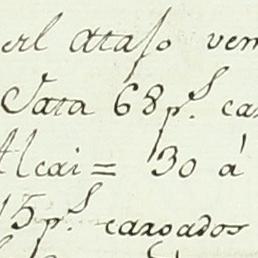 erl atajo ven
Tata 68 p.s ca
Alcai= 30 á
15 p.s cargados